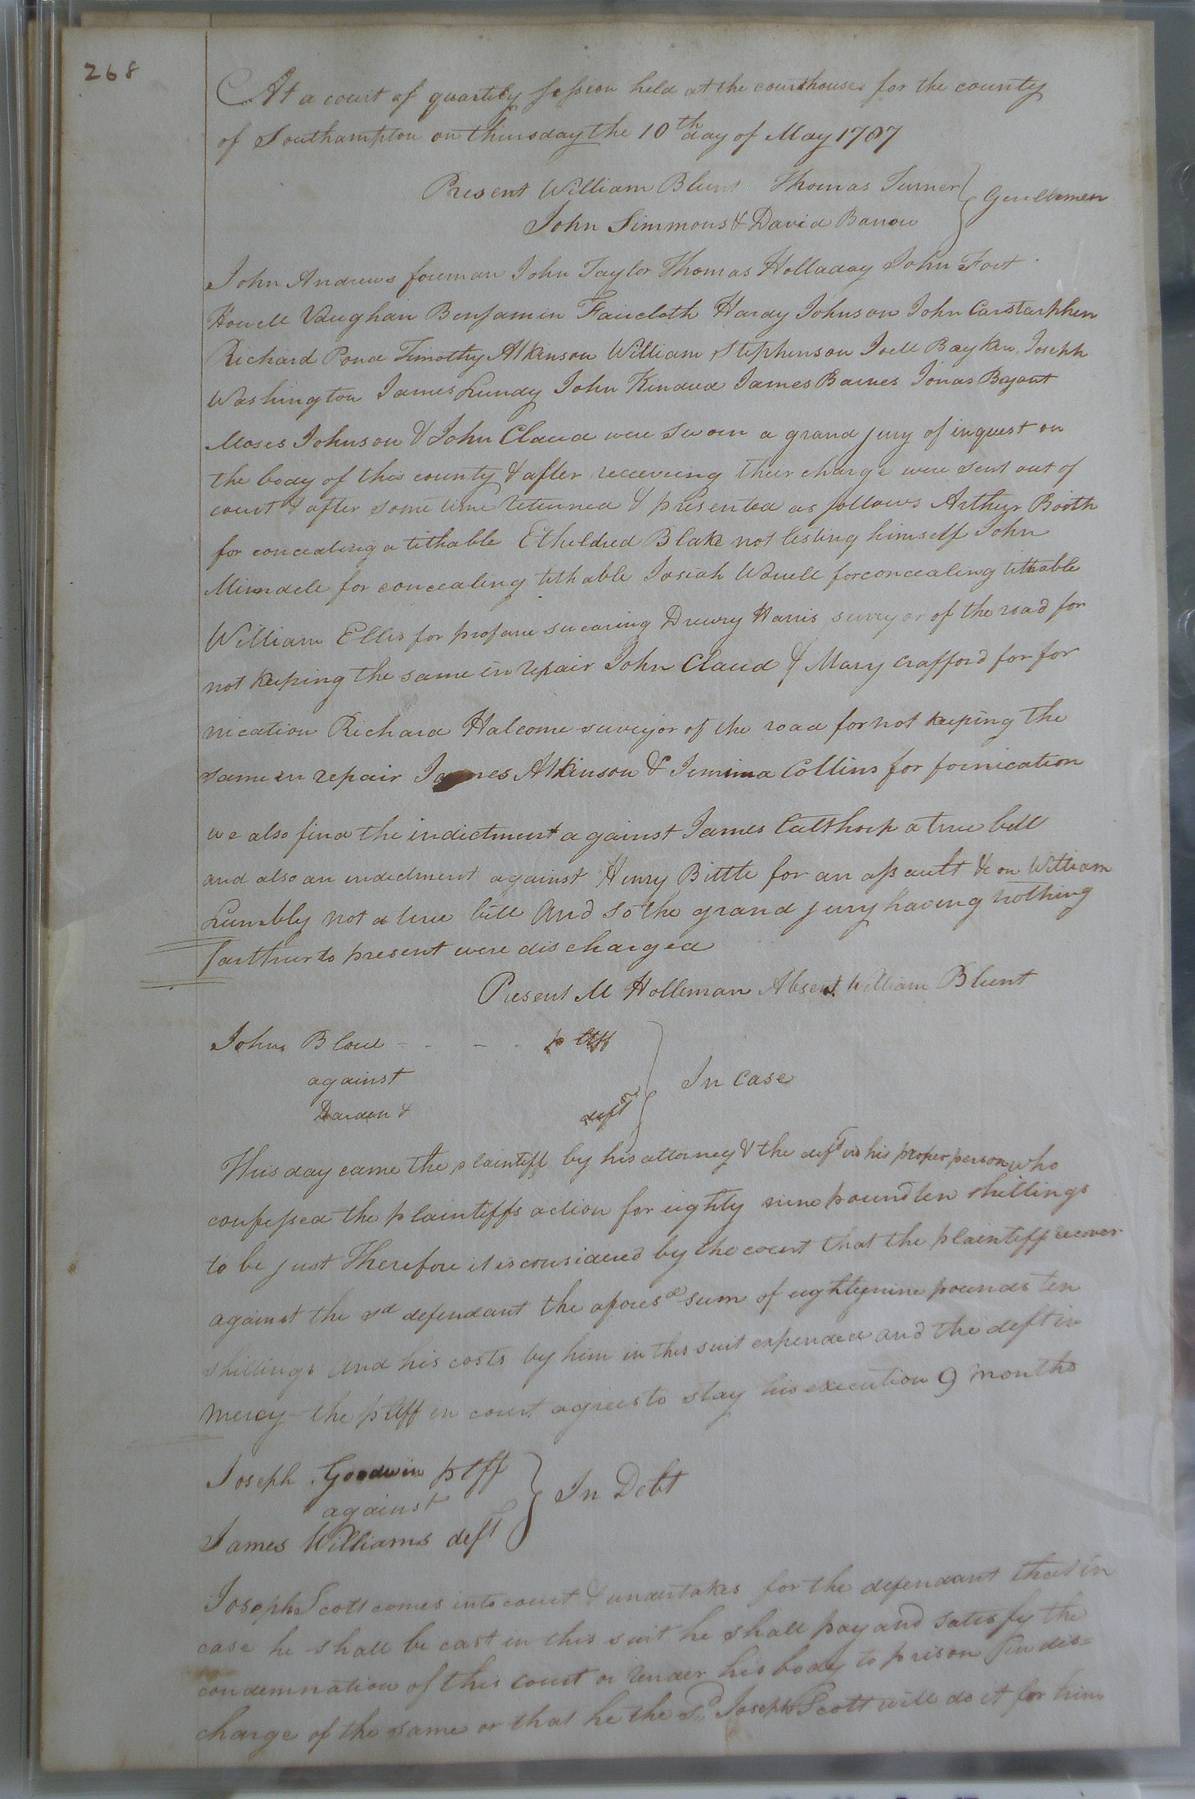 268
At a court of quartily session held at the courthouse for the county
of Southampton on thursday the 10th day of May 1787
Present William Blunt Thomas Turner
John Simmons & David Barrow
Gentlemen
John Andrews foreman John Taylor Thomas Holladay John Fort
Howell Vaughan Benjamin Faircloth Hardy Johnson John Carstarphen
Richard Pond Timothy Atkinson William Stephenson Joell Bayken Joseph
Washington James Lundy John Kindred James Barnes Jonas Bryant
Moses Johnson & John Claud were sworn a grand jury of inquest on
the body of this county & after receiveing their charge were sent out of
court & after some time returned & presented as follows Arthur Booth
for concealing a tithable Etheldred Blake not listing himself John
for concealing tithable Josiah forconcealing tithable
William Ellis for profane swearing Drewry Harris surveyor of the road for
not keeping the same in repair John Claud & Mary Crafford for for
nication Richard Halcome surveyor of the road for not keeping the
same in repair James Atkinson & Jemima Collins for fornication
we also find the indictment against James Calthorp a true bill
and also an indictment against Henry Bittle for an assault &c on William
Lumbly not a true bill And so the grand jury having nothing
farthur to present were discharged
Present M Holleman Absent William Blunt
John Blow - - - - ptiff
against
Darden &
deft
In Case
This day came the plaintiff by his attorney & the deft in his proper person who
confessed the plaintiffs action for eighty nine pound ten shillings
to be just Therefore it is considered by the court that the plaintiff recover
against the sd defendant the aforesd sum of eightynine pounds ten
shillings and his costs by him in this suit expended and the deft in
mercy the ptiff in court agrees to stay his execution 9 months
Joseph Goodwin ptff
against
James Williams deft
In Debt
Joseph Scott comes into court & undertakes for the defendant that in
case he shall be cast in this suit he shall pay and satisfy the
condemnation of this court or render his body to prison in dis=
charge of the same or that he the Sd Joseph Scott will do it for him